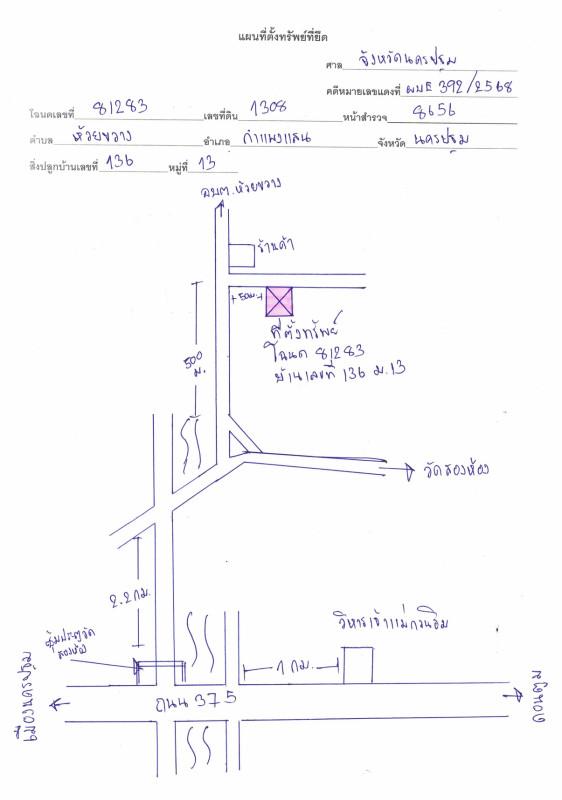 แผนที่ตั้งทรัพย์ที่ยึด
ศาล จังหวัดนครปฐม
คดีหมายเลขแดงที่ ผบE 392/2568
โฉนดเลขที่ 81283 เลขที่ดิน 1308 หน้าสำรวจ 8656
ตำบล ห้วยขวาง อำเภอ กำแพงแสน จังหวัด นครปฐม
สิ่งปลูกบ้านเลขที่ 136 หมู่ที่ 13
อบต.ห้วยขวาง
ร้านค้า
50ม
ที่ตั้งทรัพย์
โฉนด 81283
บ้านเลขที่ 136 ม.13
500 ม.
วัดสองห้อง
2.2 กม.
ซุ้มประตูวัด
สองห้อง
วิหารเจ้าแม่กวนอิม
1 กม.
เมืองนครปฐม
ถนน 375